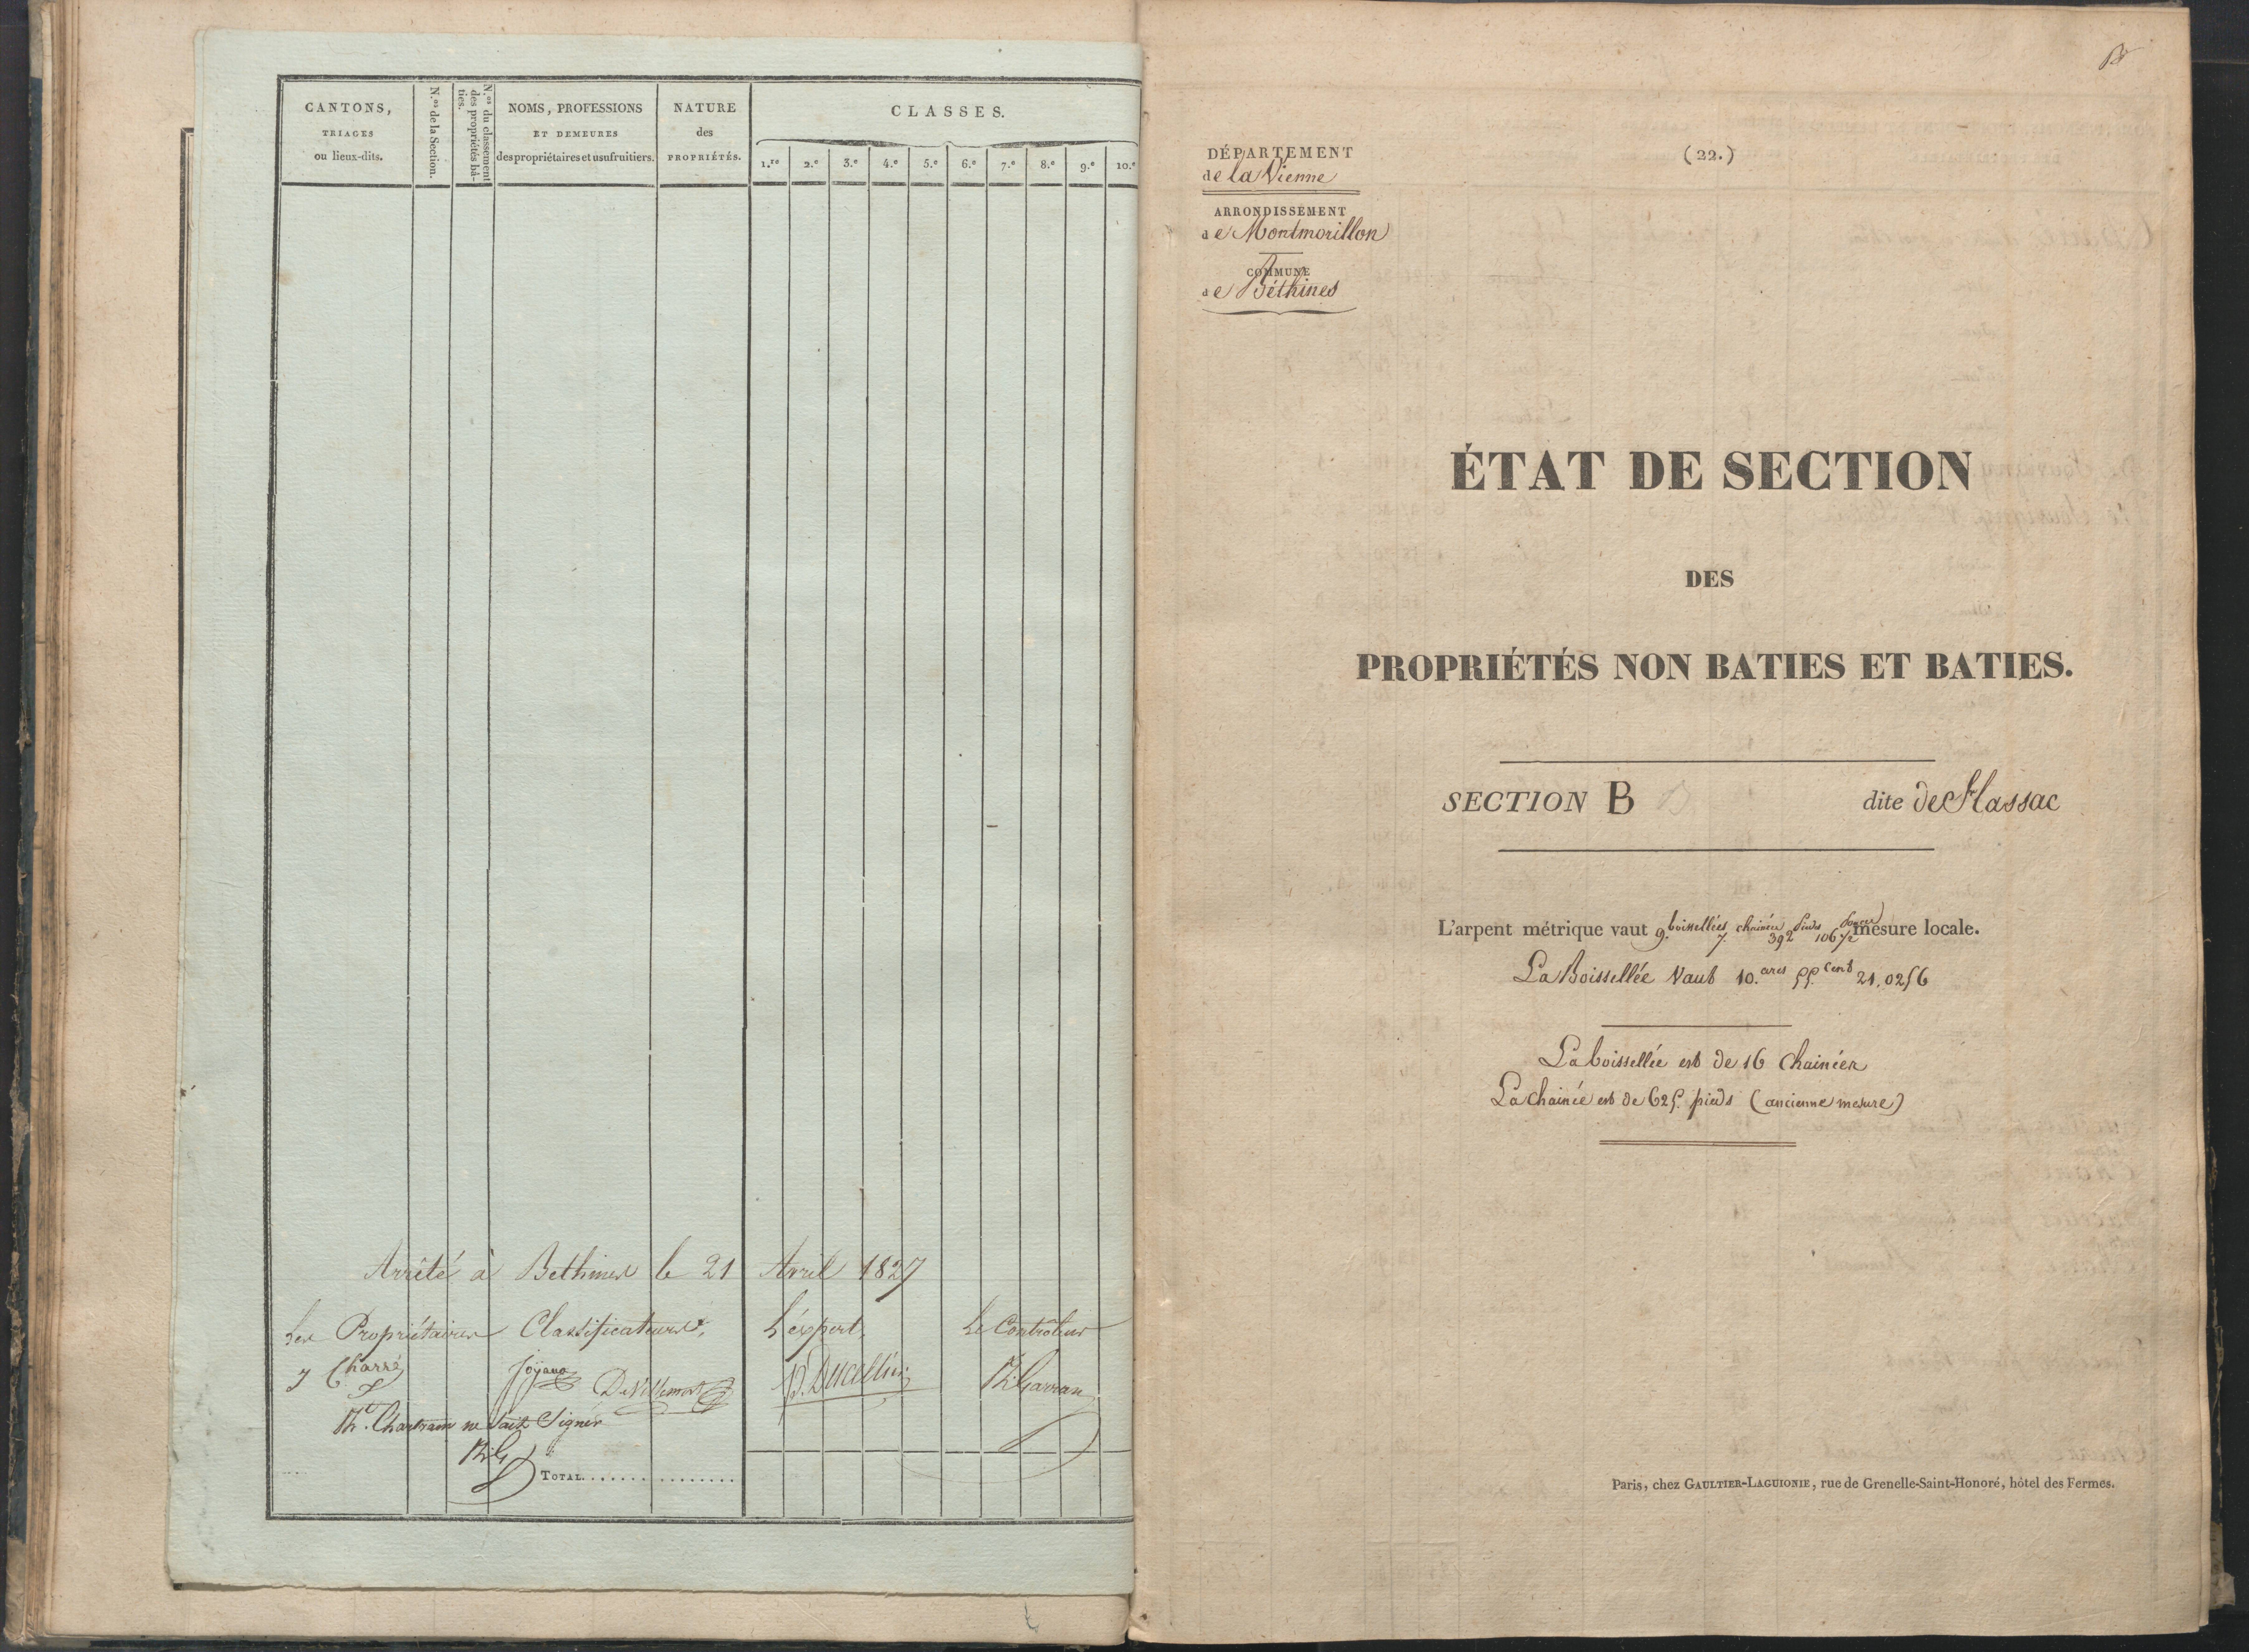 CANTONS,
TRIAGES
ou lieux-dits.
N.os de la Section.
N.os du classement
des propriétés bâ-
ties.
NOMS, PROFESSIONS
ET DEMEURES
des propriétaires et usufruitiers.
NATURE
des
PROPRIÉTÉS.
CLASSES.
1.re 2.e 3.e 4.e 5.e 6.e 7.e 8.e 9.e 10.e
Arrêté à Bethines le 21 Avril 1827
Les Propriétaires Classificateurs, L'éxpert, Le Contrôleur
J Charré Joyaux DeVillemort p. Ducellier Th. Garran
Th. Chartrain ne Sait Signer
Th. G
TOTAL................
B
DÉPARTEMENT
de la Vienne
(22.)
ARRONDISSEMENT
de Montmorillon
COMMUNE
de Béthines
ÉTAT DE SECTION
DES
PROPRIÉTÉS NON BATIES ET BATIES.
SECTION B dite de
L'arpent métrique vaut 9. boissellées 7. chainées 392 pieds 106 1/2 pouces mesure locale.
La Boissellée Vaut 10. ares 55. Cent 21,0256
La boissellée est de 16 Chainées
La Chainée est de 625. pieds (ancienne mesure)
Paris, chez GAULTIER-LAGUIONIE, rue de Grenelle-Saint-Honoré, hôtel des Fermes.